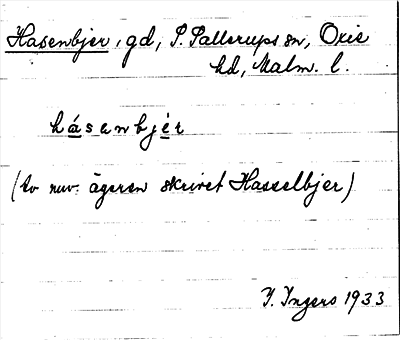 Hasenbjer, gd, S. Sallerups sn, Oxie
hd, Malm. l.
hásenbjér
(av nuv. ägaren skrivet Hasselbjer)
I. Ingers 1933